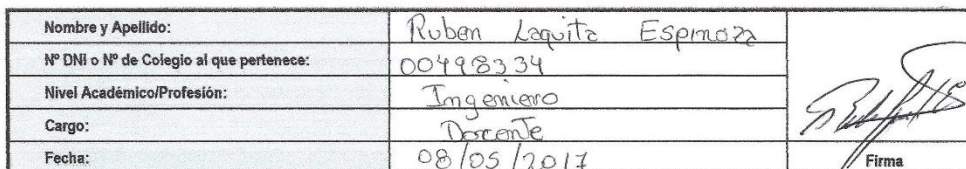 Nombre y Apellido: Ruben Laquita Espinoza
Nº DNI o Nº de Colegio al que pertenece: 00498334
Nivel Académico/Profesión: Ingeniero
Cargo: Docente
Fecha: 08/05/2017
Firma